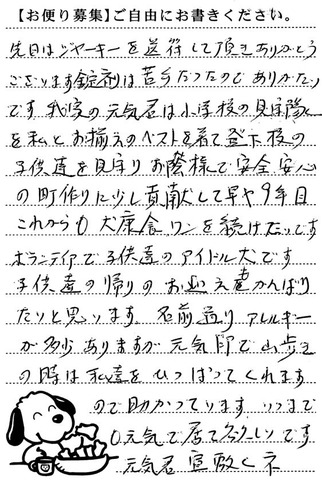 【お便り募集】ご自由にお書きください。
先日はジャーキーを送符して頂きありがとう
ございます錠剤は苦手だったのでありがたい
です我家の元気君は小学校の見守隊
を私とお揃えのベストを着て登下校の
子供達を見守りお陰様で安全安心
の町作りに少し貢献して早や9年目
これからも犬康食ワンを続けたいです
ボランティアで子供達のアイドル犬です
子供達の帰りのお迎え達がんばり
たいと思います。名前通りアレルギー
が多少ありますが元気印で山歩き
の時は私達をひっぱってくれます
ので助かっています。いつまで
も元気で居て欲しいです
元気君宜敷くネ